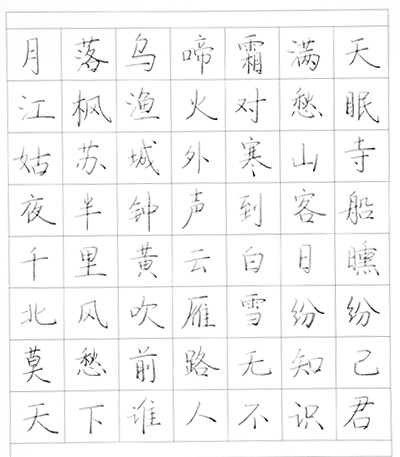 月落乌啼霜满天
江枫渔火对愁眠
姑苏城外寒山寺
夜半钟声到客船
千里黄云白日曛
北风吹雁雪纷纷
莫愁前路无知己
天下谁人不识君